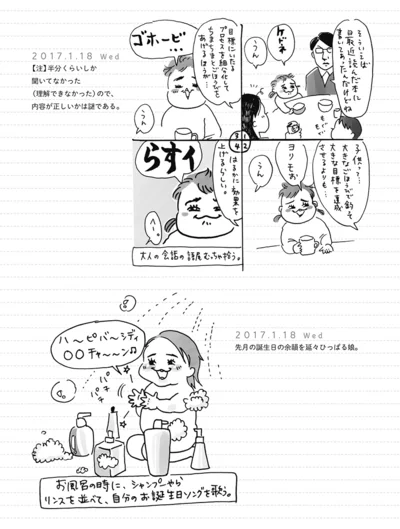 2017.1.18 Wed
【注】半分くらいしか
聞いてなかった
（理解できなかった）ので、
内容が正しいかは謎である。
そういえば
最近読んだ本に
書いてあったんだけどね
うん
ケドネ
子供って…
大きなごほうびで釣って
大きな目標を達成
させるよりも…
うん
ヨリモぉ
目標にいたる
プロセスを細分化して
ちまちまとごほうびを
あげるほうが…
うん
ゴホービ…
3 1
4 2
はるかに効果を
上げるらしい。
らすィ
へー。
大人の会話の語尾むっちゃ拾う。
2017.1.18 Wed
先月の誕生日の余韻を延々ひっぱる娘。
ハ〜ピバ〜シディ
〇〇チャ〜〜ン♫
パチ
パチ
お風呂の時に、シャンプーやら
リンスを並べて、自分のお誕生日ソングを歌う。